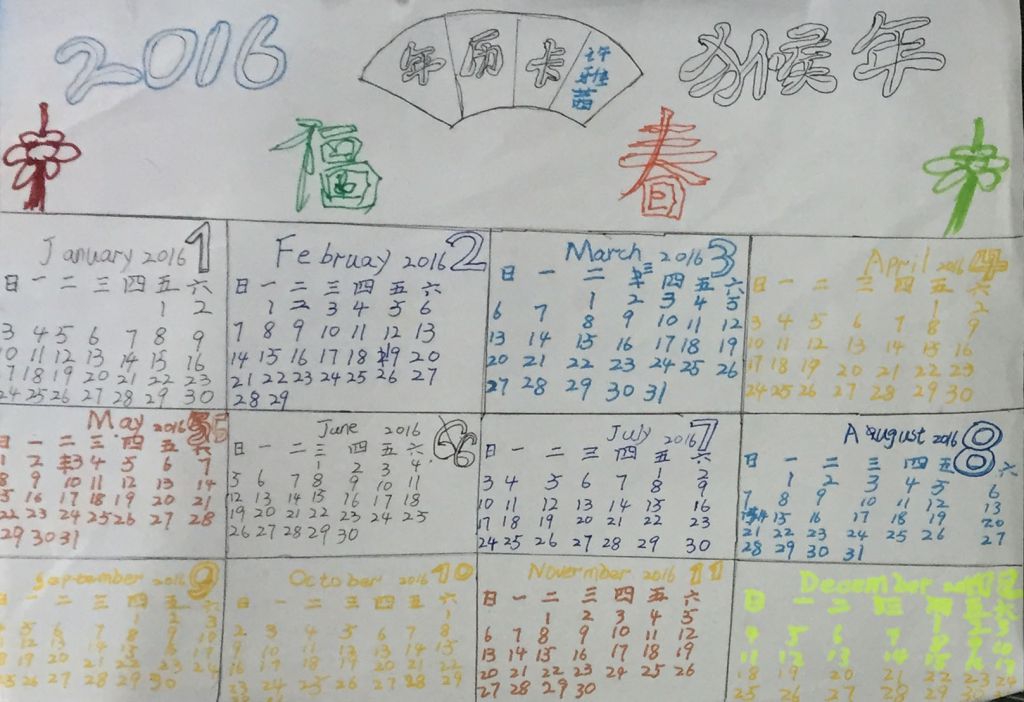 2016
年历卡
许雅
猴年
福
春
January 2016 1
日 一 二 三 四 五 六
1 2
3 4 5 6 7 8 9
10 11 12 13 14 15 16
7 18 19 20 21 22 23
24 25 26 27 28 29 30
Februay 2016 2
日 一 二 三 四 五 六
1 2 3 4 5 6
7 8 9 10 11 12 13
14 15 16 17 18 19 20
21 22 23 24 25 26 27
28 29
March 2016 3
日 一 二 三 四 五 六
1 2 3 4 5
6 7 8 9 10 11 12
13 14 15 16 17 18 19
20 21 22 23 24 25 26
27 28 29 30 31
April 2016 4
日 一 二 三 四 五 六
1 2
3 4 5 6 7 8 9
10 11 12 13 14 15 16
17 18 19 20 21 22 23
24 25 26 27 28 29 30
May 2016 5
日 一 二 三 四 五 六
1 2 3 4 5 6 7
8 9 10 11 12 13 14
15 16 17 18 19 20 21
22 23 24 25 26 27 28
29 30 31
June 2016 6
日 一 二 三 四 五 六
1 2 3 4
5 6 7 8 9 10 11
12 13 14 15 16 17 18
19 20 21 22 23 24 25
26 27 28 29 30
July 2016 7
日 一 二 三 四 五 六
1 2
3 4 5 6 7 8 9
10 11 12 13 14 15 16
17 18 19 20 21 22 23
24 25 26 27 28 29 30
A august 2016 8
日 一 二 三 四 五 六
1 2 3 4 5 6
7 8 9 10 11 12 13
14 15 16 17 18 19 20
21 22 23 24 25 26 27
28 29 30 31
September 2016 9
日 一 二 三 四 五 六
1 2 3
5 6 7 8 9 10
12 13 14 15 16 17
18 19 20 21 22 23 24
25 26 27 28 29 30
October 2016 10
日 一 二 三 四 五 六
1
2 3 4 5 6 7 8
9 10 11 12 13 14 15
16 17 18 19 20 21 22
23 24 25 26 27 28 29
Novermber 2016 11
日 一 二 三 四 五 六
1 2 3 4 5
6 7 8 9 10 11 12
13 14 15 16 17 18 19
20 21 22 23 24 25 26
27 28 29 30
December 12
日 一 二 三 四 五 六
1 2 3
4 5 6 7 8 9 10
11 12 13 14 15 16 17
18 19 20 21 22 23 24
25 26 27 28 29